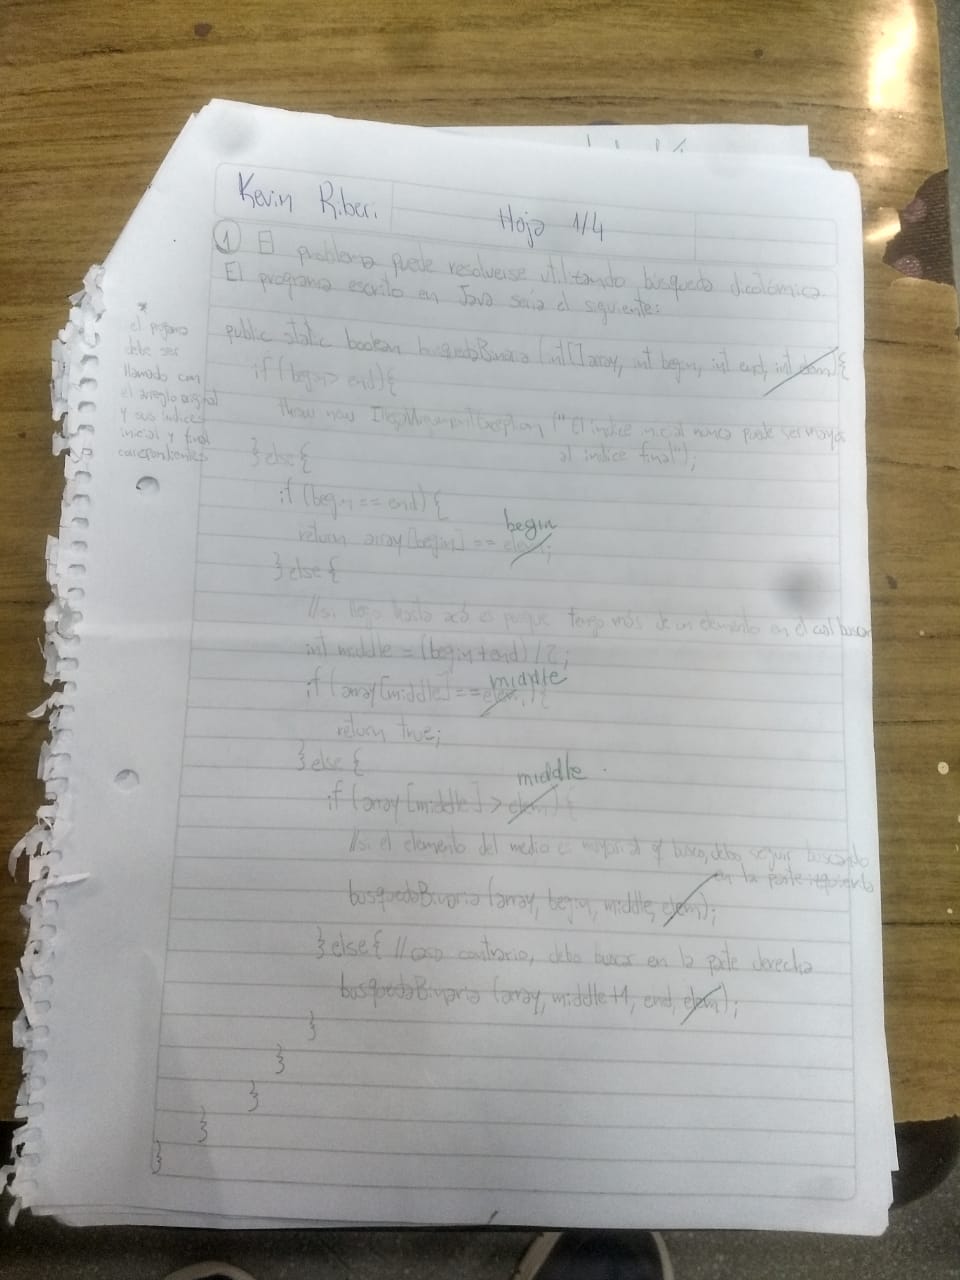 Kevin Riberi.
Hoja 1/4
① El problema puede resolverse utilizando búsqueda dicotómica.
El programa escrito en Java seria el siguiente:
* el programa
debe ser
llamado con
el arreglo original
y sus indices
inicial y final
correspondientes
public static boolean busquedaBinaria (int[] array, int begin, int end, int elem) {
if (begin > end) {
throw new IllegalArgumentException ("El indice inicial nunca puede ser mayor
al indice final");
} else {
if (begin == end) {
begin
return array[begin] == elem;
} else {
//si llego hasta acá es porque tengo más de un elemento en el cual buscar
int middle = (begin + end) / 2;
middle
if (array[middle] == elem) {
return true;
} else {
middle
if (array[middle] > elem) {
//si el elemento del medio es mayor al q' busco, debo seguir buscando
en la parte izquierda
busquedaBinaria (array, begin, middle, elem);
} else { // caso contrario, debo buscar en la parte derecha
busquedaBinaria (array, middle+1, end, elem);
}
}
}
}
}